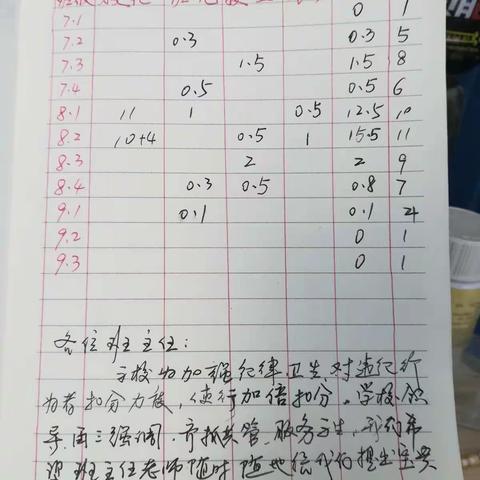 7.1 0 1
7.2 0.3 0.3 5
7.3 1.5 1.5 8
7.4 0.5 0.5 6
8.1 11 1 0.5 12.5 10
8.2 10+4 0.5 1 15.5 11
8.3 2 2 9
8.4 0.3 0.5 0.8 7
9.1 0.1 0.1 4
9.2 0 1
9.3 0 1
各位班主任:
学校为加强纪律卫生对违纪行
为者扣分力度,使行加倍扣分。学校领
导再三强调,齐抓共管,服务学生,我们希
班主任老师随时随地给我们提出宝贵